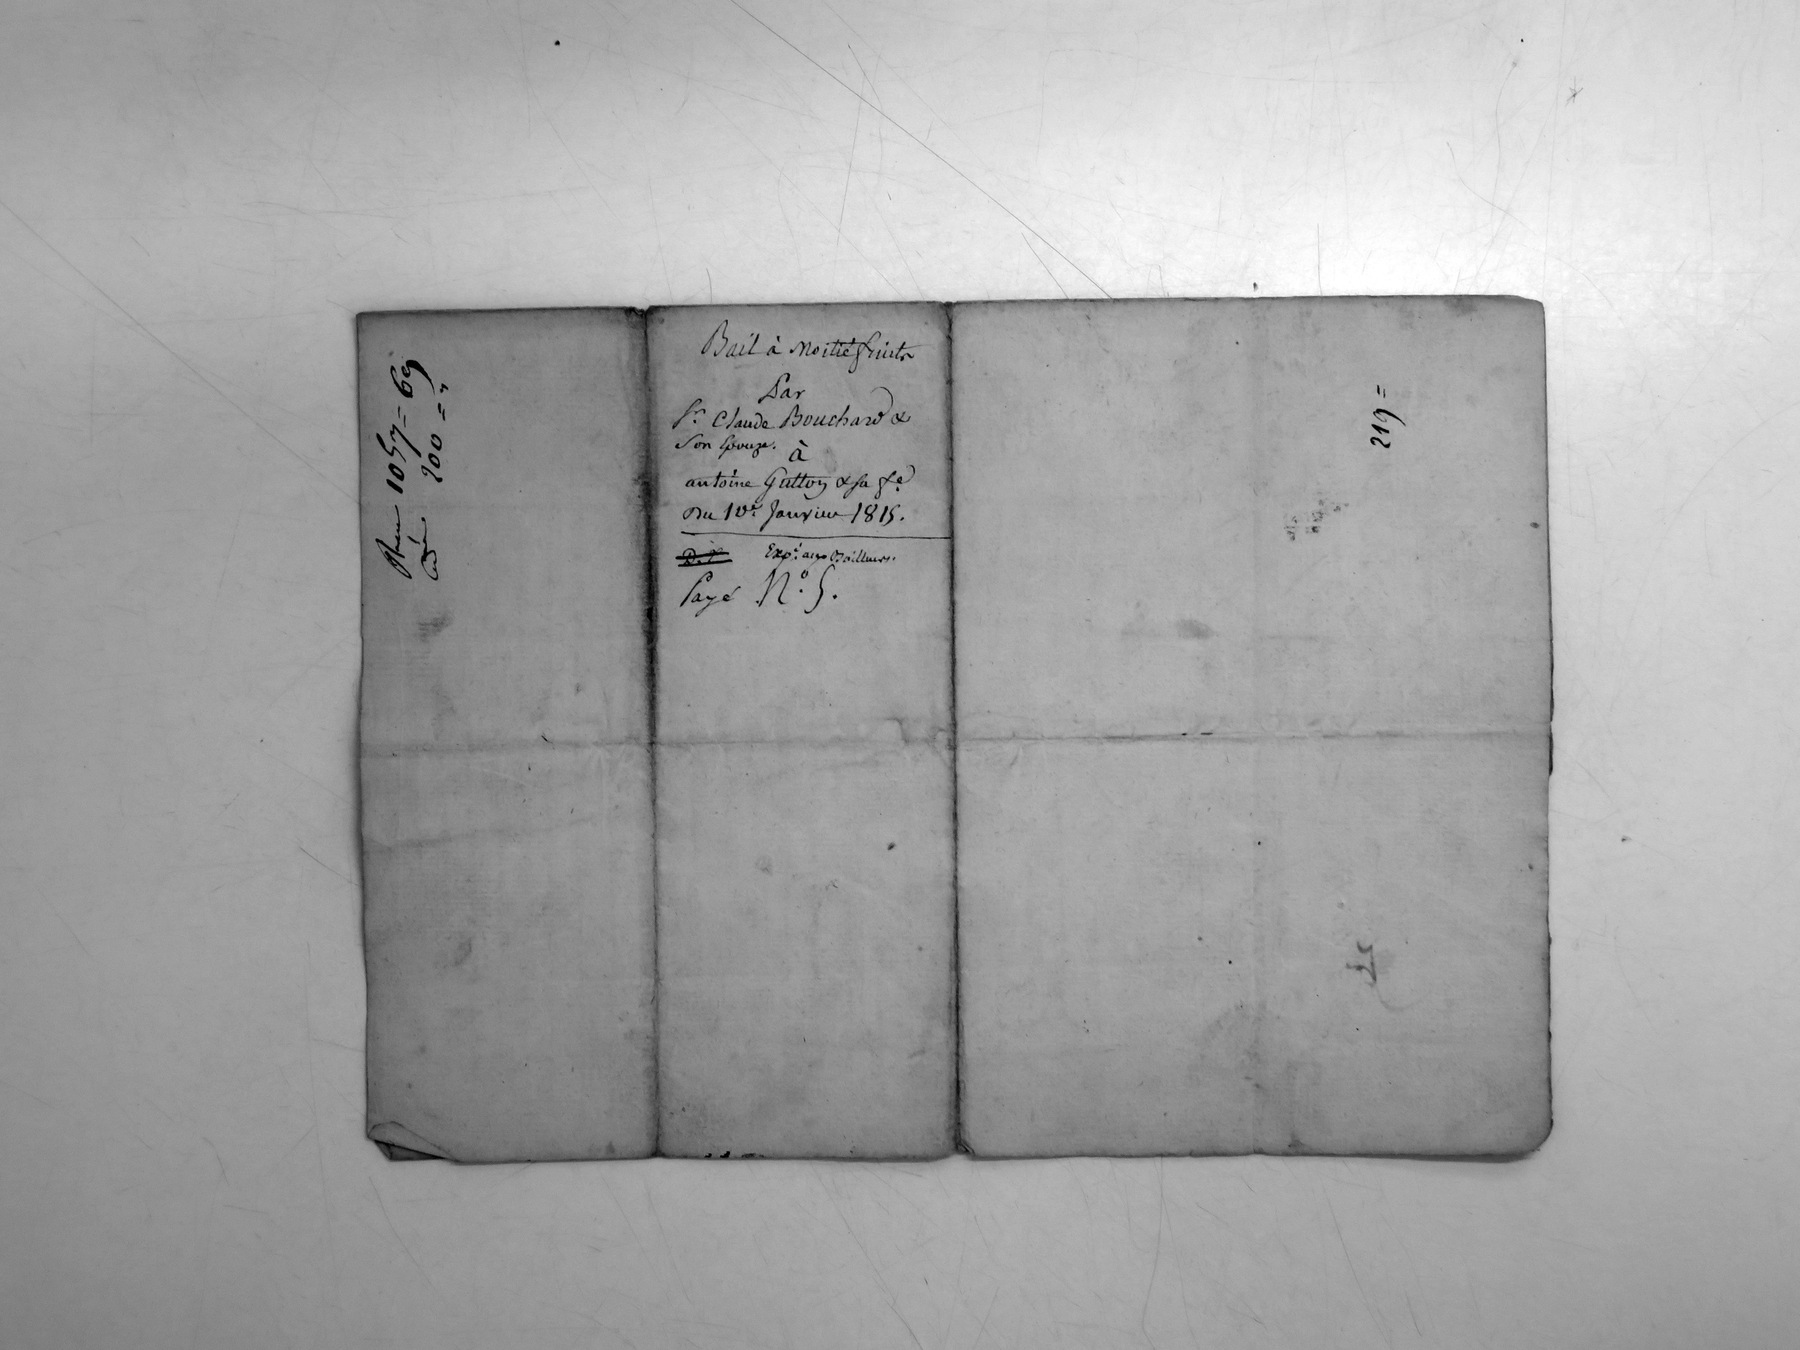 Bail à Moitié fruits
Par
Sr. Claude Bouchard &
Son Epouze.
à
antoine Gutton & sa fe.
Du 10e. Janvier 1815.
Expé. aux Bailleurs.
Payé N.° 5.
1057 = 69
200 = "
219 =